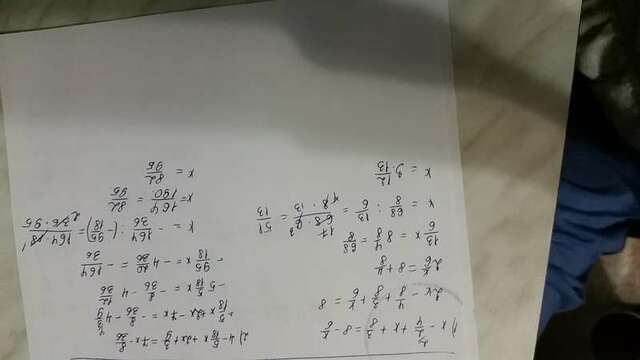 1) x - 4/8 + x + 3/8 = 8 - x/6
2x - 4/8 + 3/8 + x/6 = 8
2 x/6 = 8 + 4/8
13/6 x = 8 4/8 = 68/8
x = 68/8 : 13/6 = 68·6/8·13 = 51/13
x = 3 12/13
2) 4 - 5/18 x + 2x + 4/9 = 7x - 8/36
- 5/18 x + 2x - 7x = - 8/36 - 4 4/9
- 5 5/18 x = - 8/36 - 4 12/36
- 95/18 x = - 4 20/36 = - 164/36
x = - 164/36 : (- 95/18) = 164·18/36·95
x = 164/190 = 82/95
x = 82/95